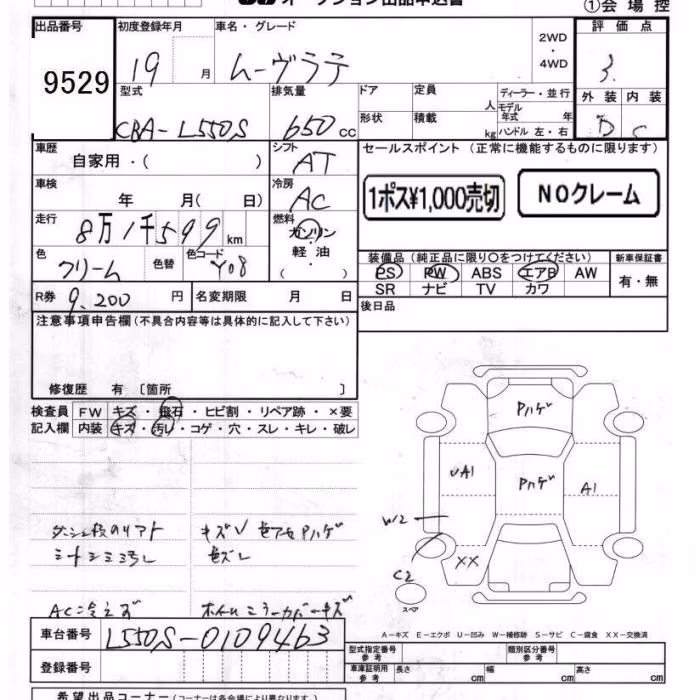 オークション出品申込書
①会場控
出品番号
9529
初度登録年月
19
月
車名・グレード
ムーヴラテ
2WD
・
4WD
評価点
3
型式
CBA-L550S
排気量
650 cc
ドア
定員
人
ディーラー・並行
形状
積載
kg
モデル年式 年
ハンドル 左・右
外装 内装
D C
車歴
自家用・( )
シフト
AT
セールスポイント (正常に機能するものに限ります)
1ポス¥1,000売切
NOクレーム
車検
年 月( 日)
冷房
AC
走行
8万1千599 km
燃料
ガソリン
・
軽油
( )
色
クリーム
色替
色コード
Y08
装備品 (純正品に限り○をつけてください)
新車保証書
PS PW ABS エアB AW
SR ナビ TV カワ
有・無
R券
9,200 円
名変期限 月 日
後日品
注意事項申告欄(不具合内容等は具体的に記入して下さい)
修復歴 有 〔箇所 〕
検査員
記入欄
FW キズ・飛石・ヒビ割・リペア跡・×要
内装 キズ・汚レ・コゲ・穴・スレ・キレ・破レ
Pハゲ
UA1
Pハゲ
A1
W2
XX
C2
スペア
シートシミコゲ
キズ
Pハゲ
色ズレ
AC冷えず
ホイルミラーカバーキズ
A-キズ E-エクボ U-凹み W-補修跡 S-サビ C-腐食 XX-交換済
車台番号
L550S-0109463
登録番号
型式指定番号
参考
類別区分番号
参考
車庫証明用
参考
長さ cm
幅 cm
高さ cm
希望出品コーナー(コーナーは各会場により異なります。)